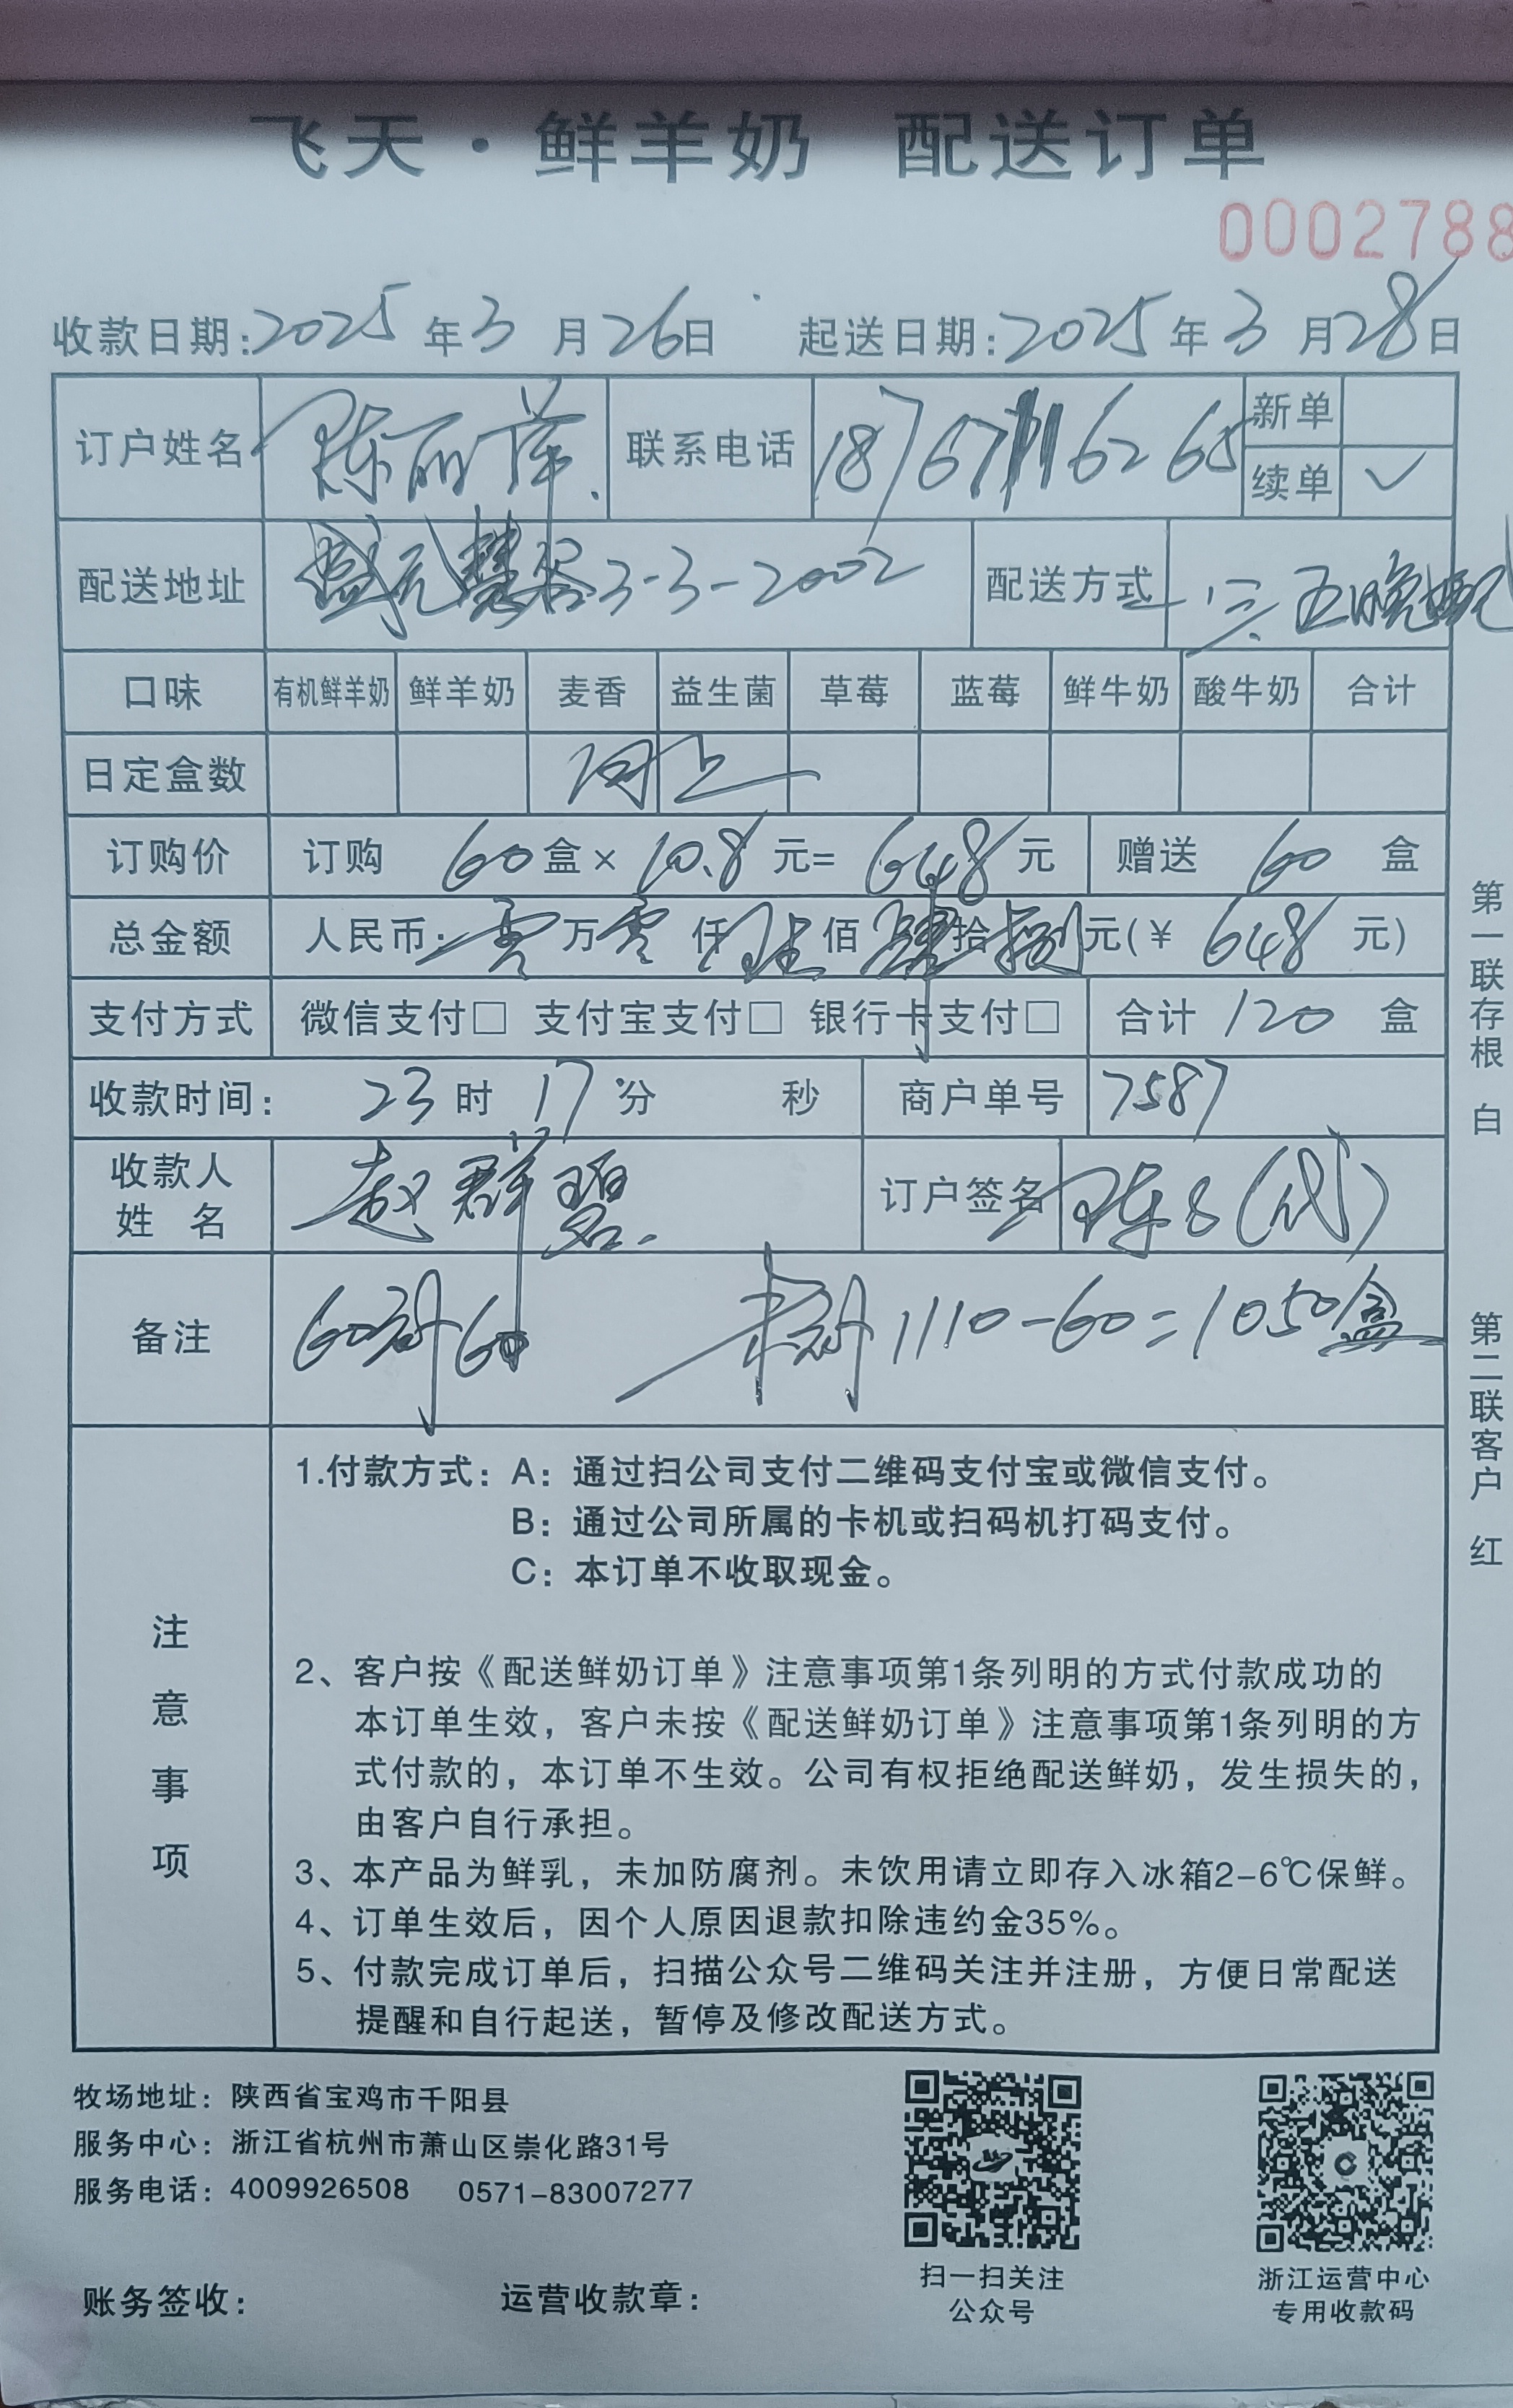 飞天·鲜羊奶 配送订单
0002788
收款日期:2025年3月26日 起送日期:2025年3月28日
订户姓名 陈丽萍 联系电话 新单
续单 ✓
配送地址 盛元慧谷3-3-2002 配送方式 一、三、五晚配
口味 有机鲜羊奶 鲜羊奶 麦香 益生菌 草莓 蓝莓 鲜牛奶 酸牛奶 合计
日定盒数 同上
订购价 订购 60盒×10.8元=648元 赠送 60 盒
总金额 人民币:零万零仟陆佰肆拾捌元(¥648元)
支付方式 微信支付□ 支付宝支付□ 银行卡支付□ 合计 120 盒
收款时间: 23时17分 秒 商户单号 7587
收款人姓名 赵群碧 订户签名 (代)
备注 60 60 1110-60=1050盒
注意事项
1.付款方式:A:通过扫公司支付二维码支付宝或微信支付。
B:通过公司所属的卡机或扫码机打码支付。
C:本订单不收取现金。
2、客户按《配送鲜奶订单》注意事项第1条列明的方式付款成功的
本订单生效,客户未按《配送鲜奶订单》注意事项第1条列明的方
式付款的,本订单不生效。公司有权拒绝配送鲜奶,发生损失的,
由客户自行承担。
3、本产品为鲜乳,未加防腐剂。未饮用请立即存入冰箱2-6℃保鲜。
4、订单生效后,因个人原因退款扣除违约金35%。
5、付款完成订单后,扫描公众号二维码关注并注册,方便日常配送
提醒和自行起送,暂停及修改配送方式。
第一联存根 白
第二联客户 红
牧场地址:陕西省宝鸡市千阳县
服务中心:浙江省杭州市萧山区崇化路31号
服务电话:4009926508 0571-83007277
扫一扫关注
公众号
浙江运营中心
专用收款码
账务签收: 运营收款章: